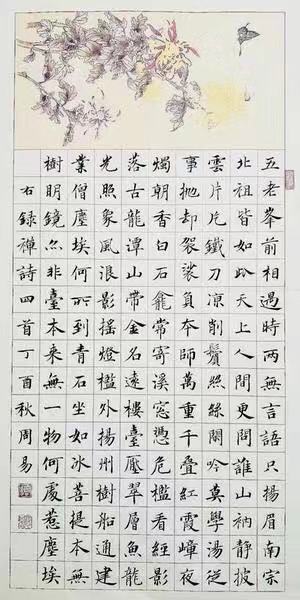 五老峯前相遇時兩無言語只揚眉南宗
北祖皆如此天上人間更問誰山衲靜披
雲片片鐵刀凉削鬢照絲關吟莫學湯從
事拋却袈裟負本師萬重千疊紅霞嶂夜
燭朝香白石龕常寄溪窓憑危檻看經影
落古龍潭山帶金名遠樓臺壓翠層魚龍
光照象風浪影搖燈檻外揚州樹船通建
業僧塵埃何所到青石坐如冰菩提本無
樹明鏡亦非臺本來無一物何處惹塵埃
右錄禪詩四首丁酉秋周易